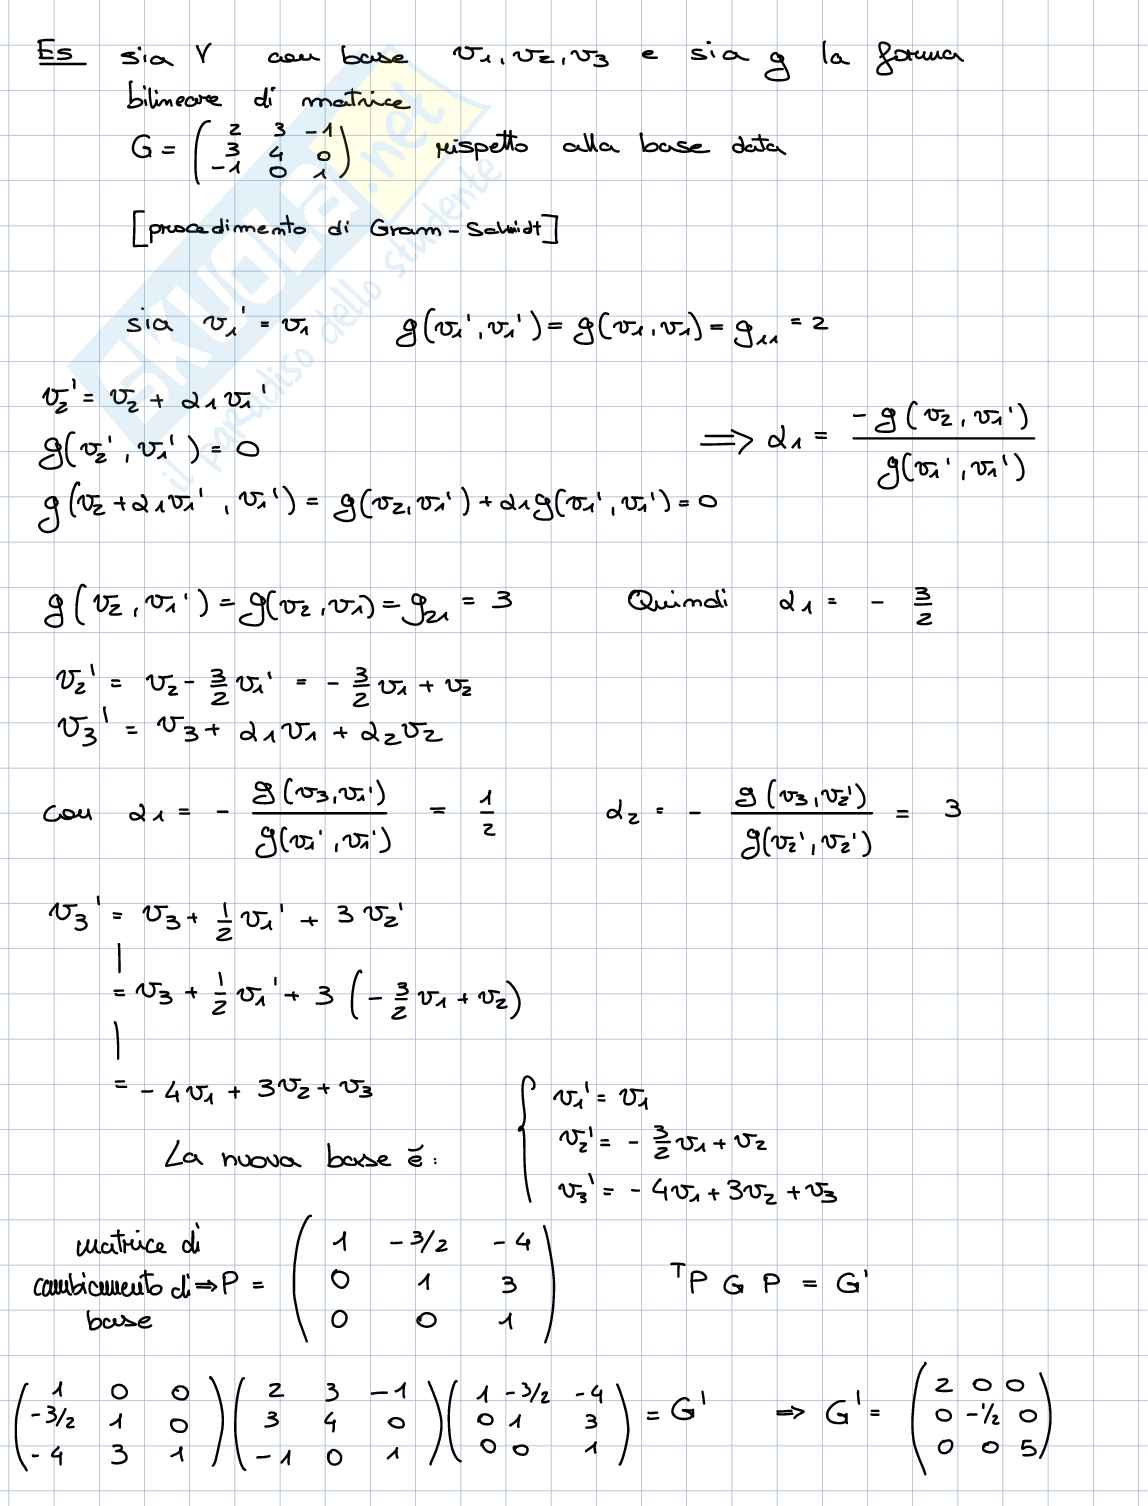 Es sia V con base v1, v2, v3 e sia g la forma
bilineare di matrice
G = ( 2 3 -1
3 4 0
-1 0 1 ) rispetto alla base data
[procedimento di Gram-Schmidt]
sia v1' = v1 g(v1', v1') = g(v1, v1) = g11 = 2
v2' = v2 + α1v1'
g(v2', v1') = 0 ⟹ α1 = -g(v2, v1') / g(v1', v1')
g(v2 + α1v1', v1') = g(v2, v1') + α1g(v1', v1') = 0
g(v2, v1') = g(v2, v1) = g21 = 3 Quindi α1 = - 3/2
v2' = v2 - 3/2 v1' = - 3/2 v1 + v2
v3' = v3 + α1v1 + α2v2
con α1 = - g(v3, v1') / g(v1', v1') = 1/2 α2 = - g(v3, v2') / g(v2', v2') = 3
v3' = v3 + 1/2 v1' + 3 v2'
= v3 + 1/2 v1' + 3 ( - 3/2 v1 + v2 )
= - 4v1 + 3v2 + v3
La nuova base è: { v1' = v1
v2' = - 3/2 v1 + v2
v3' = - 4v1 + 3v2 + v3
matrice di
cambiamento di
base ⇒ P = ( 1 -3/2 -4
0 1 3
0 0 1 ) ᵀP G P = G'
( 1 0 0
-3/2 1 0
-4 3 1 ) ( 2 3 -1
3 4 0
-1 0 1 ) ( 1 -3/2 -4
0 1 3
0 0 1 ) = G' ⇒ G' = ( 2 0 0
0 -1/2 0
0 0 5 )
SKUOLA.net
il paradiso dello studente